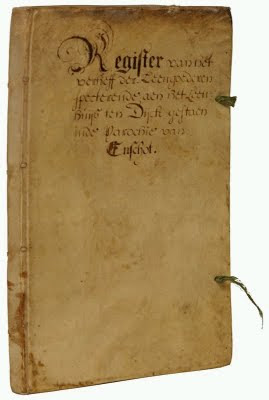 Register van het
verheff der Leengoederen
specterende aen het Leen
huijs ten Dijck gestaen
inde Parochie van
Enschot.